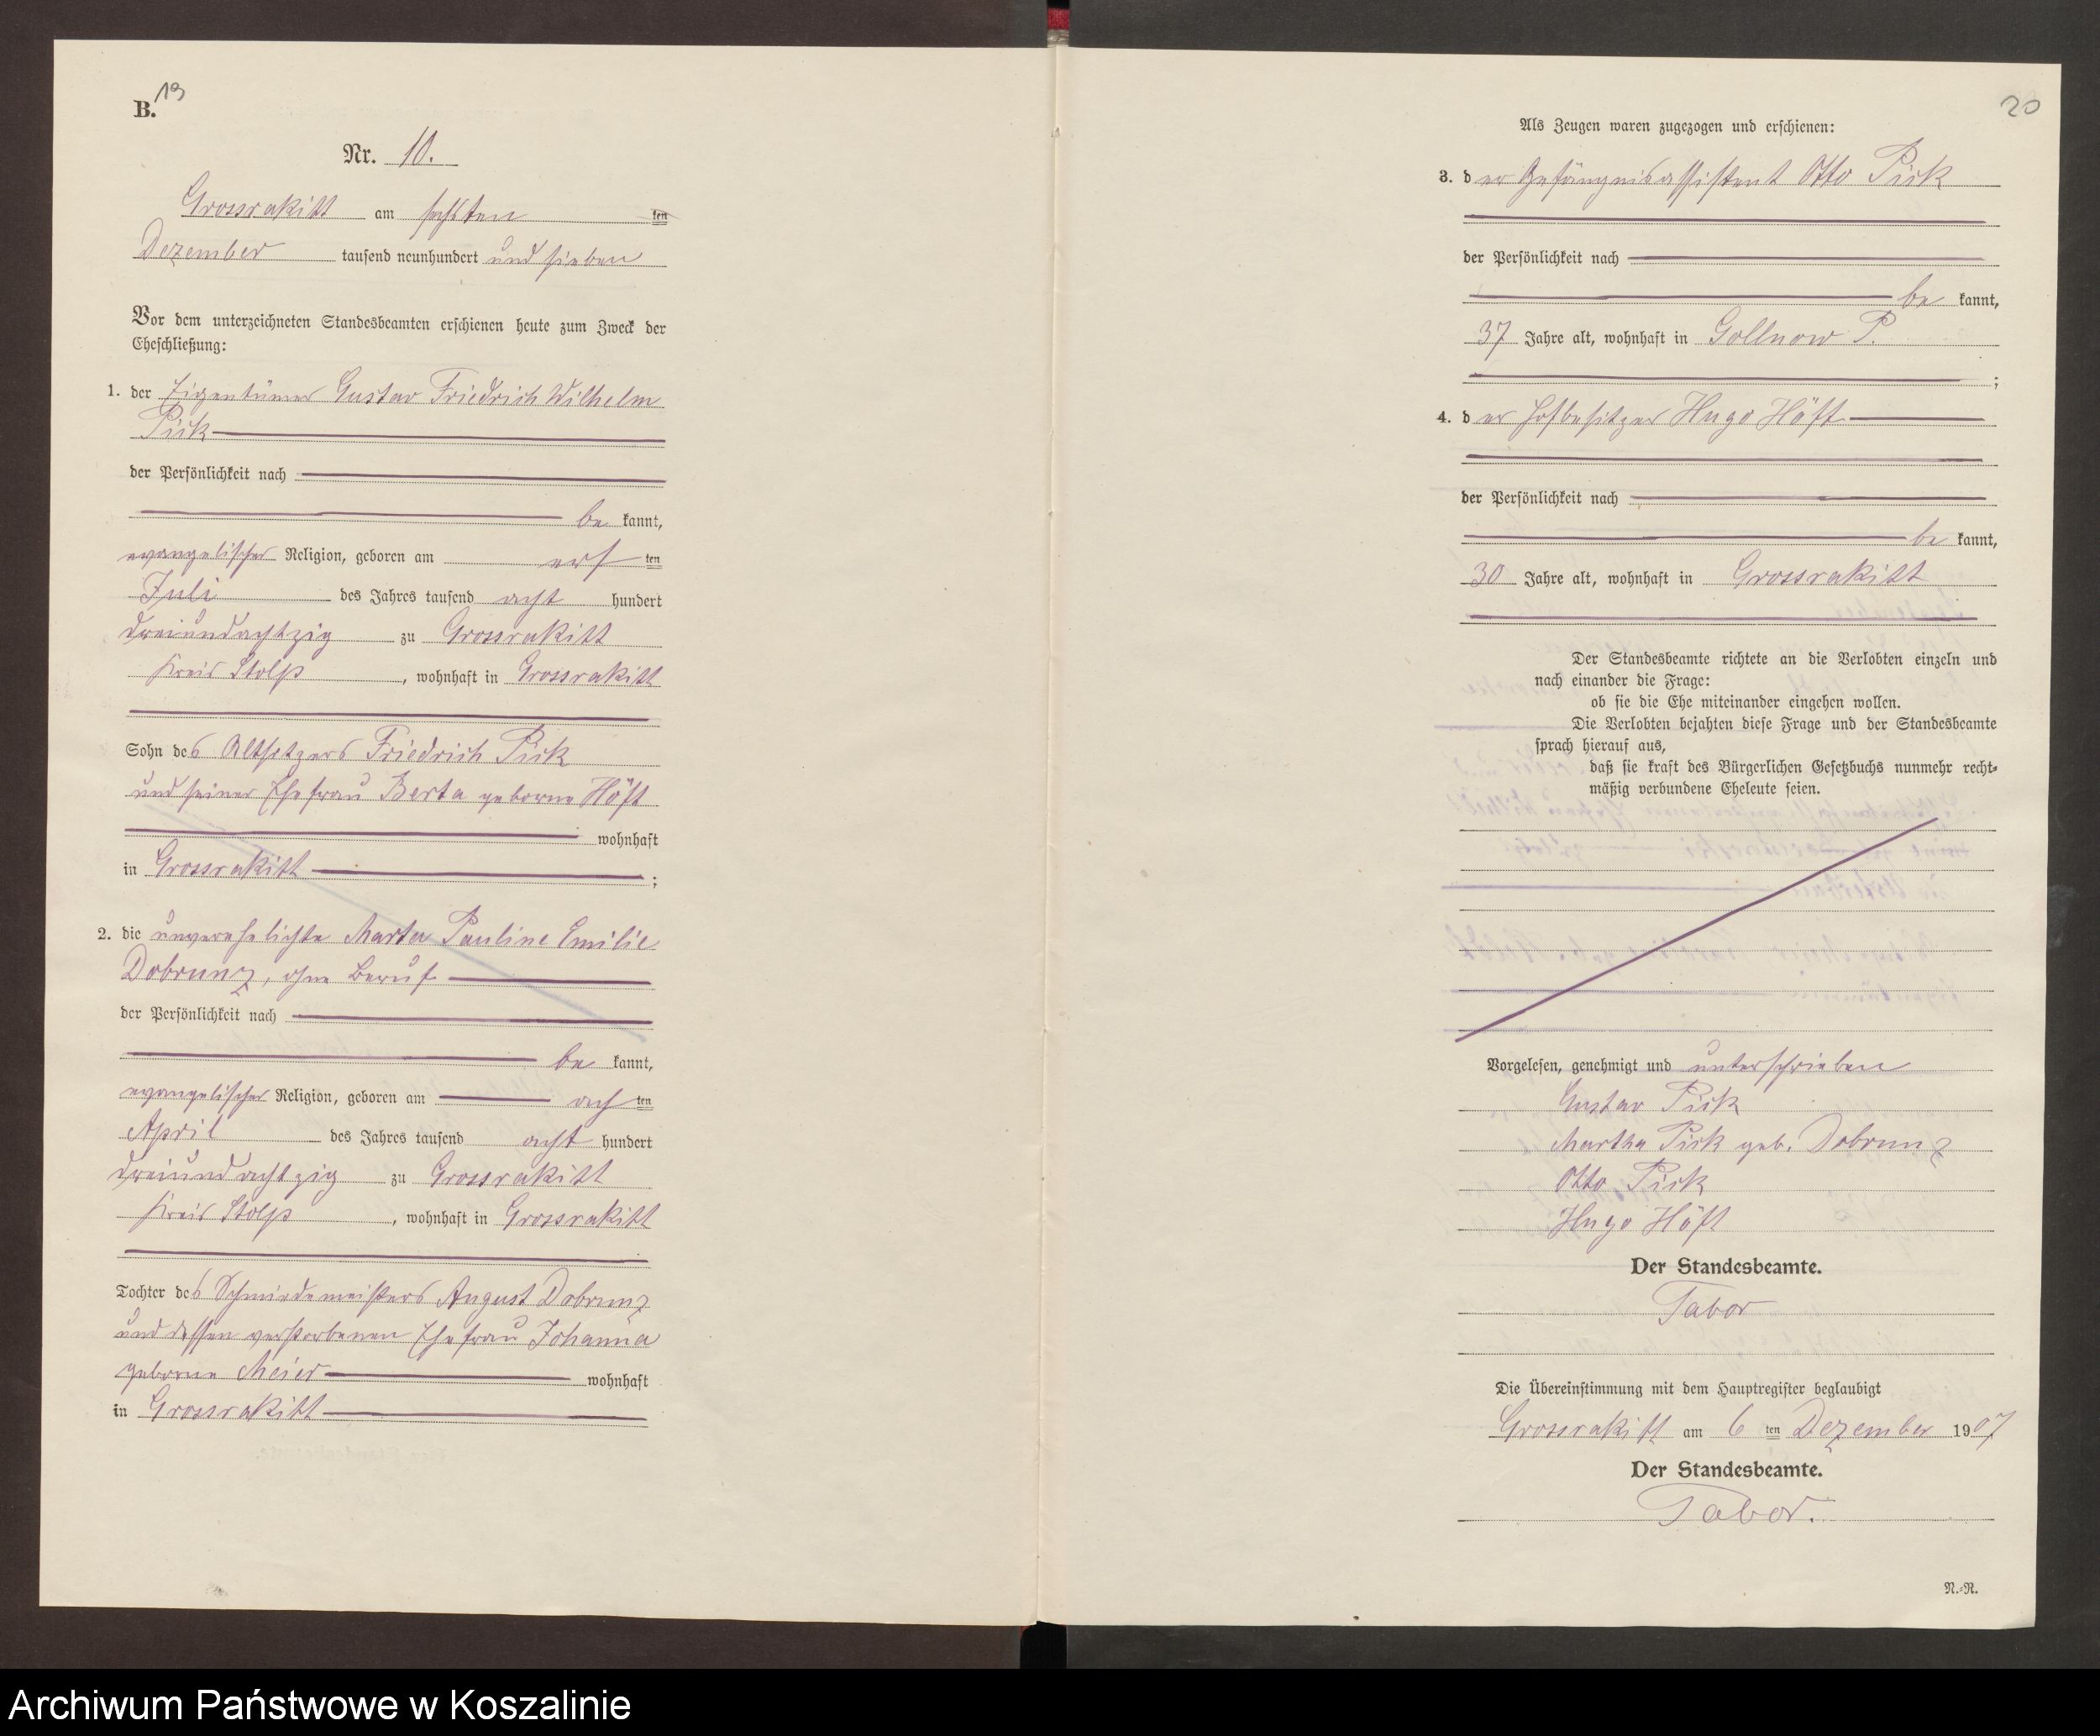 B.
19
Nr. 10.
Grossrakitt am sechsten ten
Dezember tausend neunhundert und sieben
Vor dem unterzeichneten Standesbeamten erschienen heute zum Zweck der
Eheschließung:
1. der Eigentümer Gustav Friedrich Wilhelm
Pick
der Persönlichkeit nach
be kannt,
evangelischer Religion, geboren am ersten
Juli des Jahres tausend acht hundert
dreiundachtzig zu Grossrakitt
Kreis Stolp, wohnhaft in Grossrakitt
Sohn des Altsitzers Friedrich Pick
und seiner Ehefrau Berta geborne Höft
wohnhaft
in Grossrakitt ;
2. die unverehelichte Marta Pauline Emilie
Dobrunz, ohne Beruf
der Persönlichkeit nach
be kannt,
evangelischer Religion, geboren am achten
April des Jahres tausend acht hundert
dreiundachtzig zu Grossrakitt
Kreis Stolp, wohnhaft in Grossrakitt
Tochter des Schmiedemeisters August Dobrunz
und dessen verstorbenen Ehefrau Johanna
geborne Meier wohnhaft
in Grossrakitt
20
Als Zeugen waren zugezogen und erschienen:
3. der Gefängnisassistent Otto Pick
der Persönlichkeit nach
be kannt,
37 Jahre alt, wohnhaft in Gollnow P.
;
4. der Hofbesitzer Hugo Höft
der Persönlichkeit nach
be kannt,
30 Jahre alt, wohnhaft in Grossrakitt
Der Standesbeamte richtete an die Verlobten einzeln und
nach einander die Frage:
ob sie die Ehe miteinander eingehen wollen.
Die Verlobten bejahten diese Frage und der Standesbeamte
sprach hierauf aus,
daß sie kraft des Bürgerlichen Gesetzbuchs nunmehr recht-
mäßig verbundene Eheleute seien.
Vorgelesen, genehmigt und unterschrieben
Gustav Pick
Martha Pick geb. Dobrunz
Otto Pick
Hugo Höft
Der Standesbeamte.
Tabor
Die Übereinstimmung mit dem Hauptregister beglaubigt
Grossrakitt am 6 ten Dezember 1907
Der Standesbeamte.
Tabor.
N.-N.
Archiwum Państwowe w Koszalinie